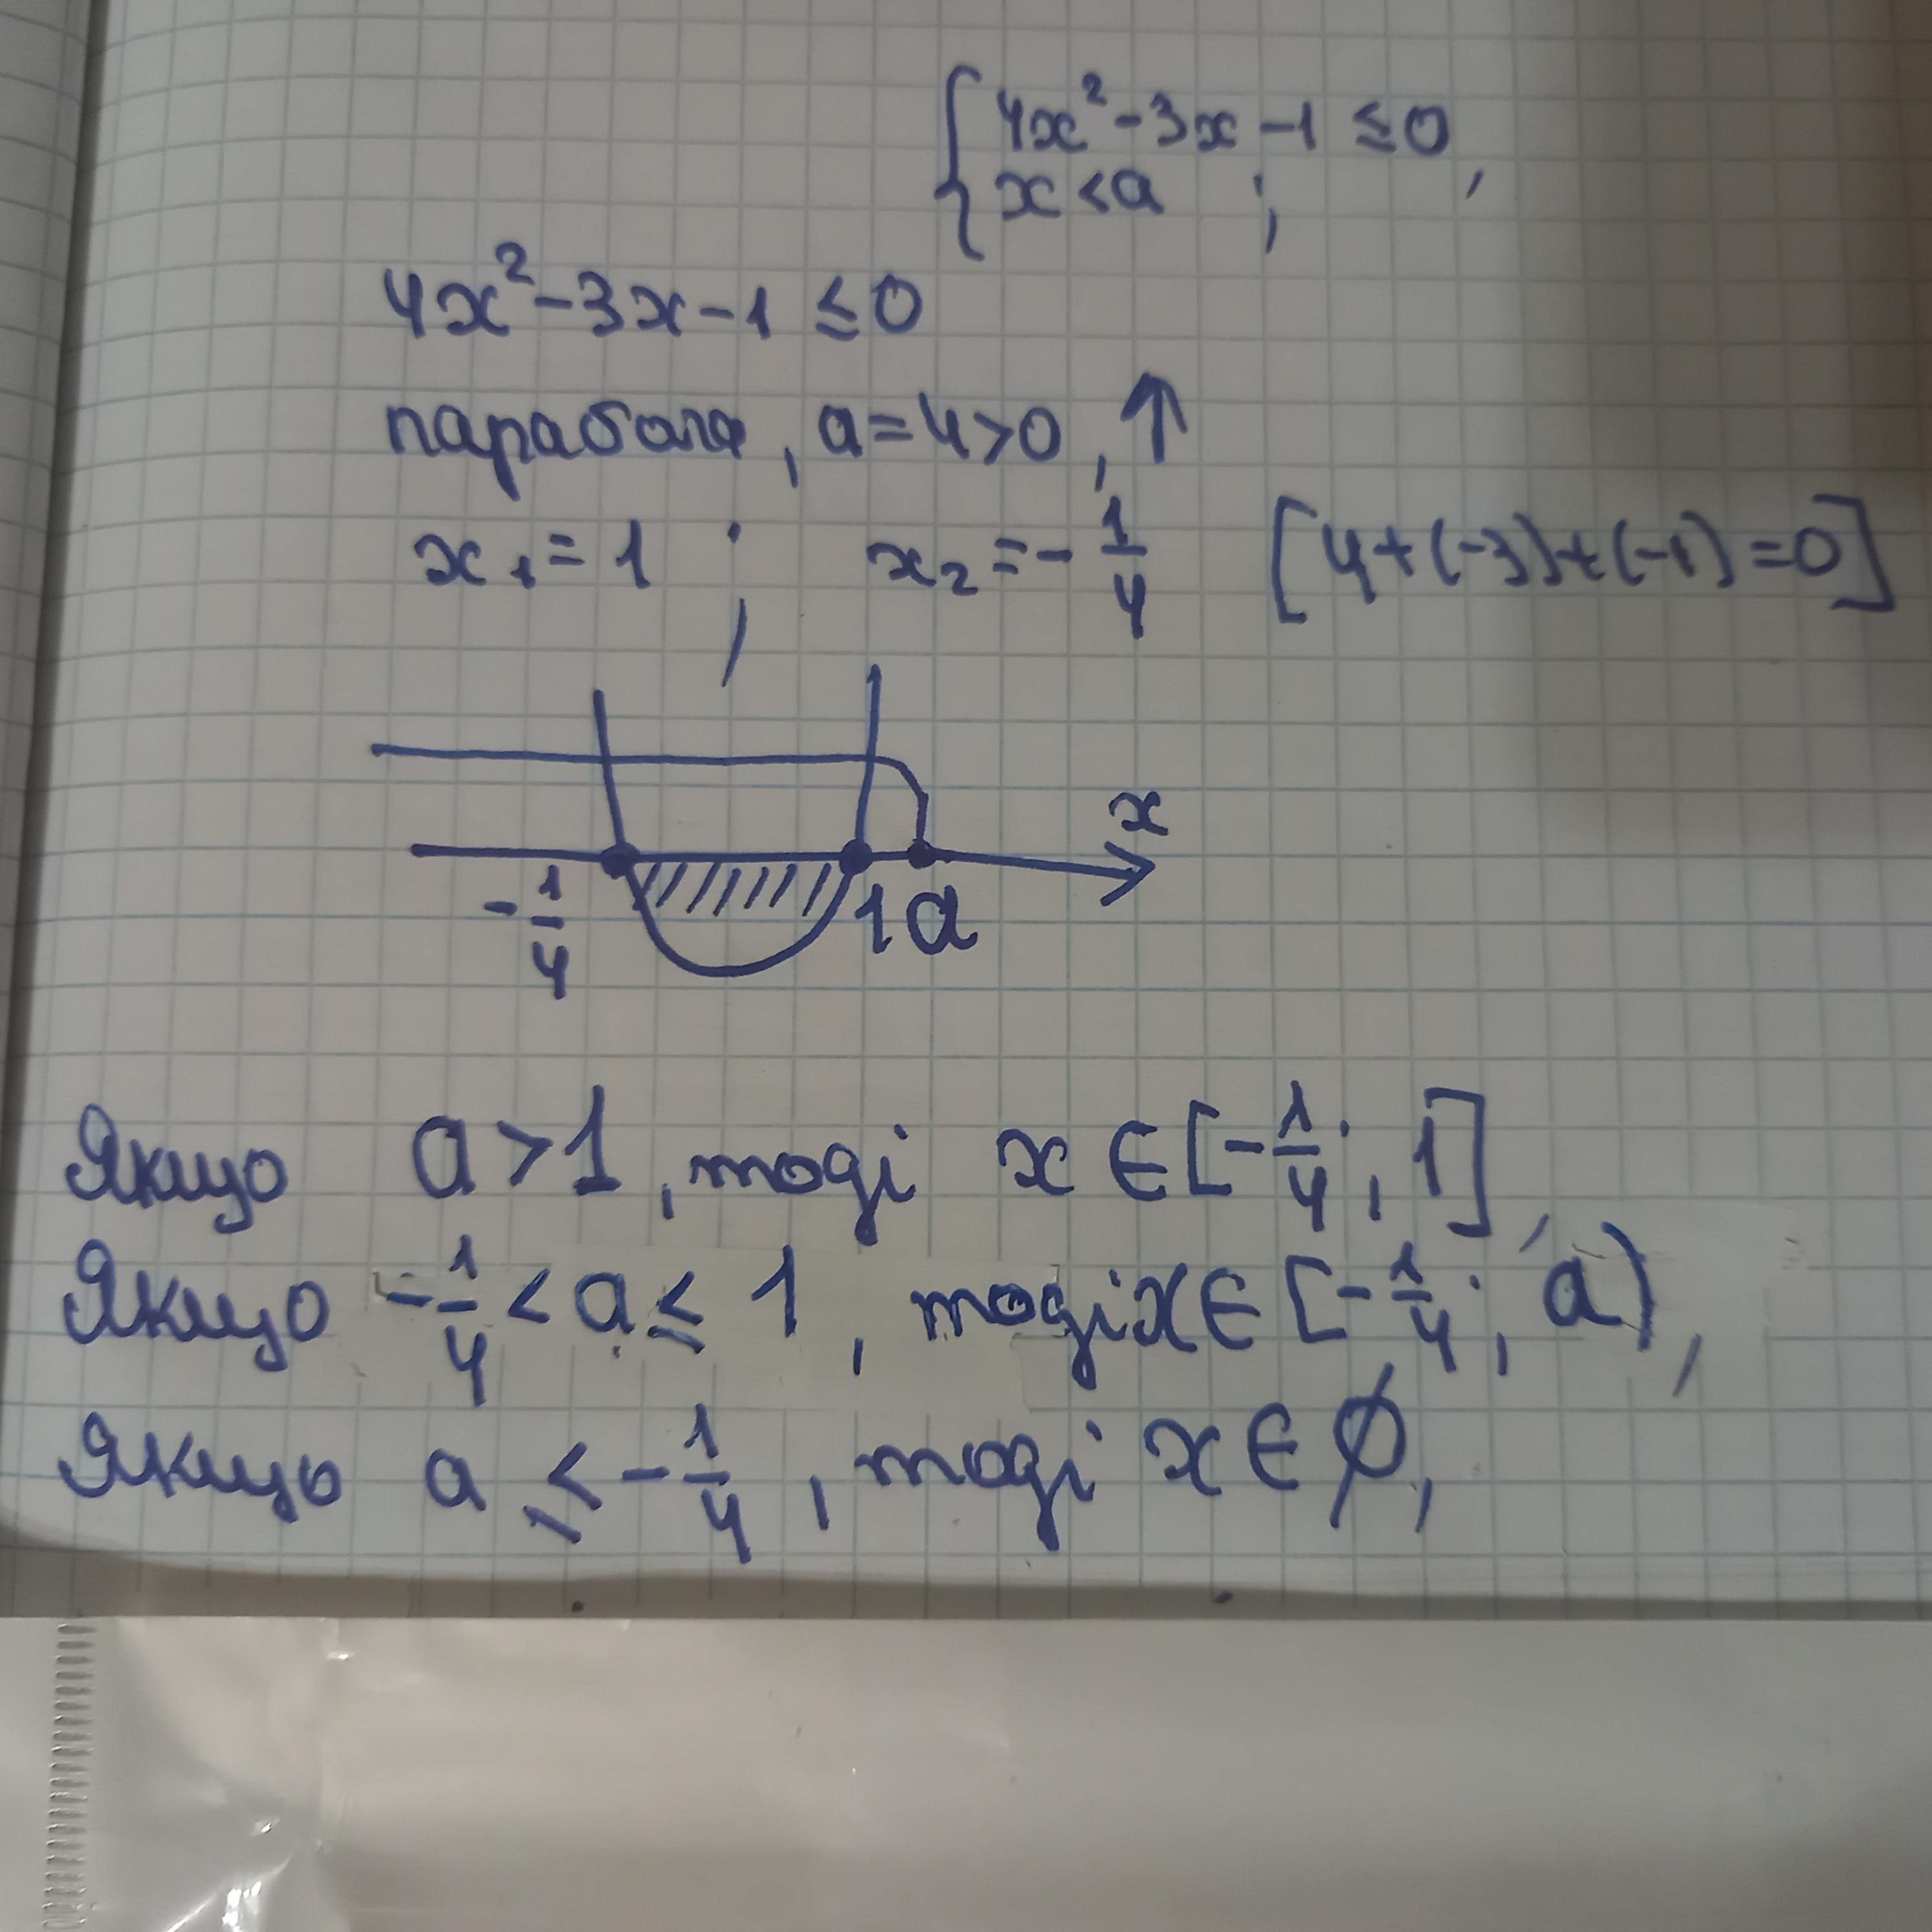 {4x² - 3x - 1 ≤ 0,
x < a ;
4x² - 3x - 1 ≤ 0
парабола, a = 4 > 0, ↑
x₁ = 1 ; x₂ = - 1/4 [4 + (-3) + (-1) = 0]
x
- 1/4 1 a
Якщо a > 1, тоді x ∈ [- 1/4 ; 1],
Якщо - 1/4 < a ≤ 1, тоді x ∈ [- 1/4 ; a),
Якщо a ≤ - 1/4, тоді x ∈ ∅,